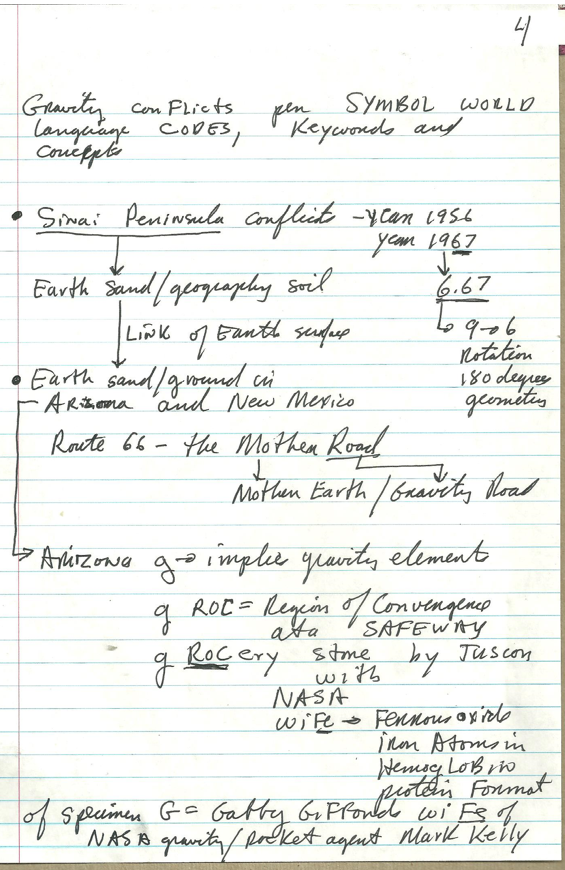 4
Gravity conFlicts per SYMBOL WORLD
Language CODES, Keywords and
concepts
• Sinai Peninsula conflicts - year 1956
year 1967
Earth sand/geography soil 6.67
Link of Earth surface 9→6
Rotation
• Earth sand/ground in 180 degrees
Arizona and New Mexico geometry
Route 66 - the Mother Road
Mother Earth / Gravity Road
Arizona g→ implies gravity element
g ROC = Region of Convergence
at a SAFEWAY
g ROCery store by Tuscon
with
NASA
wiFe → Ferrous oxide
iron Atoms in
HemogLoBin
protein Format
of specimen G = Gabby GiFFords wiFe of
NASA gravity/rocket agent Mark Kelly